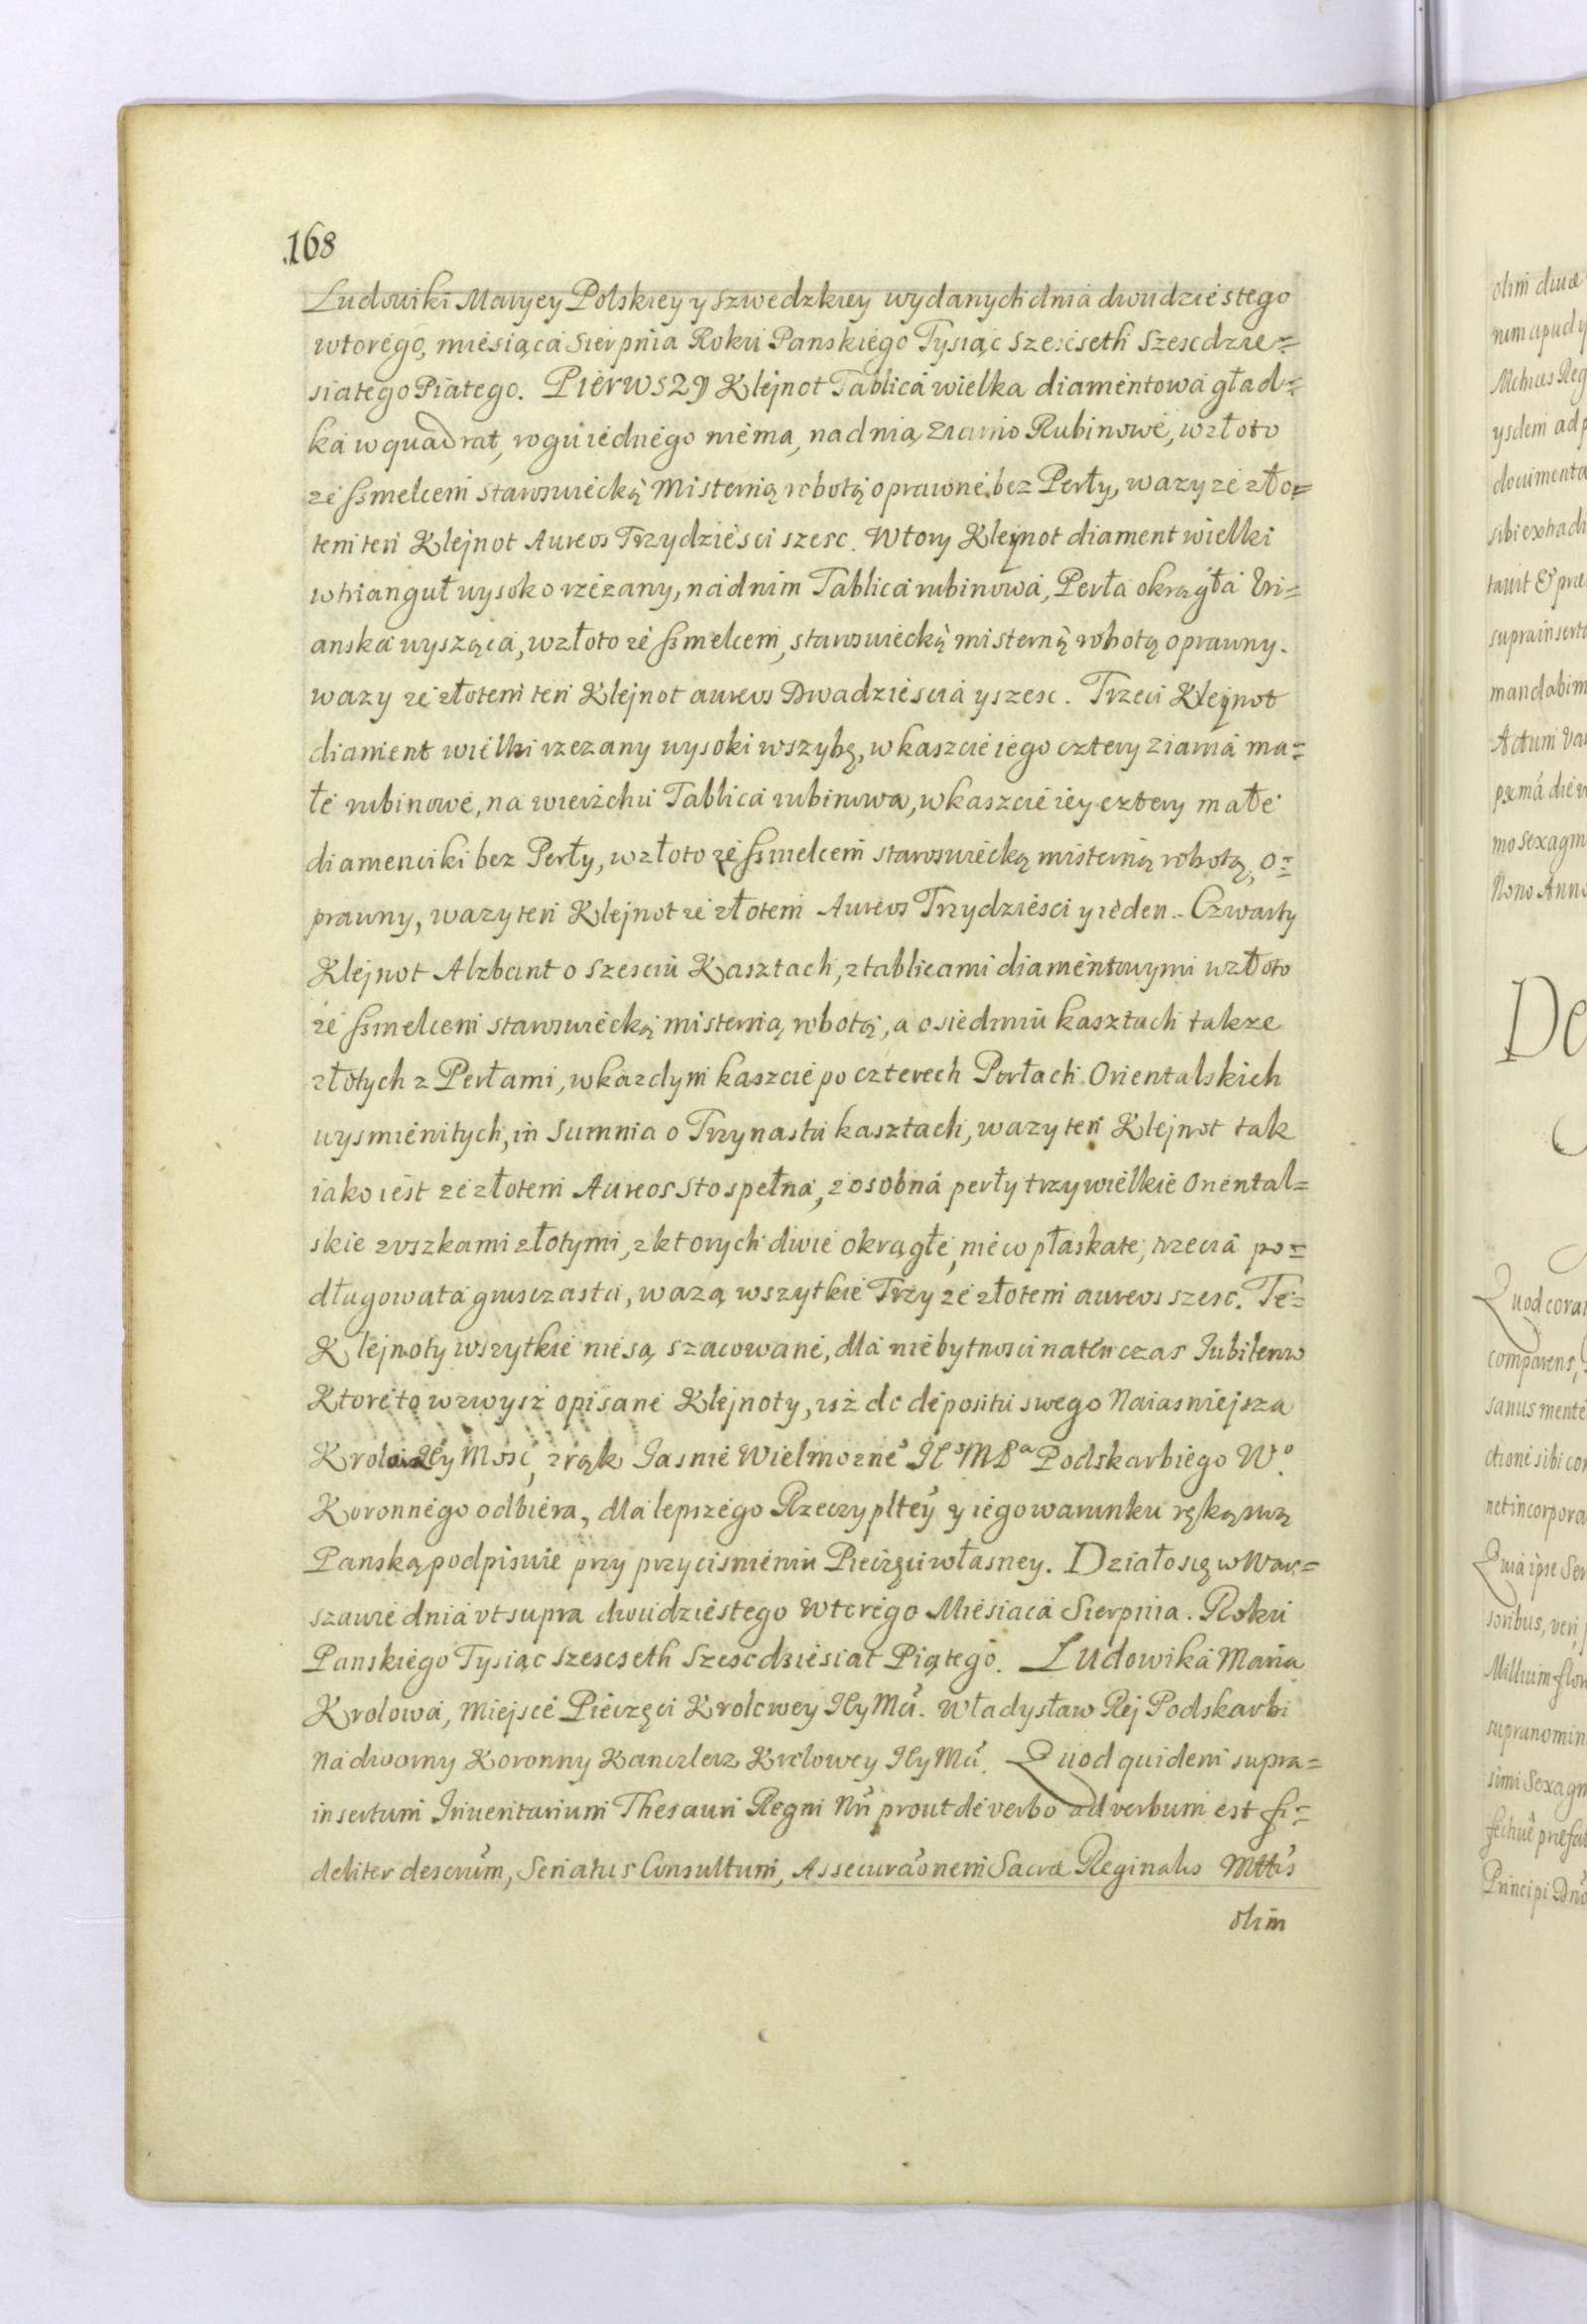 168
Ludowiki Maryey Polskiey y Szwedzkiey wydanych dnia dwudziestego
wtorego, miesiąca Sierpnia Roku Panskiego Tysiąc Szescseth Szescdzie=
siatego Piatego. Pierwszy Klejnot Tablica wielka diamentowa gład=
ka w quadrat, rogu iednego niema, nad nią ziarno Rubinowe, w złoto
ze ssmelcem staroswiecką misterną robotą oprawne bez Perły, wazy ze zło=
tem ten Klejnot Aureos Trzydziesci szesc. Wtory Klejnot diament wielki
w trianguł wysoko rzezany, nad nim Tablica rubinowa, Perła okrągła Uri=
anska wysząca, w złoto ze ssmelcem, staroswiecką misterną robotą oprawny.
wazy ze złotem ten Klejnot aureos Dwadziescia y szesc. Trzeci Klejnot
diament wielki rzezany wysoki w szybę, w kaszcie iego cztery ziarna ma=
łe rubinowe, na wierzchu Tablica rubinowa, w kaszcie iey cztery małe
diamenciki bez Perły, w złoto ze ssmelcem staroswiecką misterną robotą, o=
prawny, wazy ten Klejnot ze złotem Aureos Trzydziesci y ieden. Czwarty
Klejnot Alzbant o szesciu Kasztach, z tablicami diamentowymi w złoto
ze ssmelcem staroswiecką misterną robotą, a o siedmiu kasztach takze
złotych z Perłami, w kazdym kaszcie po czterech Perłach Orientalskich
wysmienitych, in Summa o Trzynastu kasztach, wazy ten Klejnot tak
iako iest ze złotem Aureos Sto spełna, z osobna perły trzy wielkie Oriental=
skie z uszkami złotymi, z ktorych dwie okrągłe, nieco płaskate, trzecia po=
długowata grusczasta, wazą wszytkie Trzy ze złotem aureos szesc. Te
Klejnoty wszytkie niesą szacowane, dla niebytnosci naten czas Jubilerow
Ktore to wzwysz opisane Klejnoty, isz do depositu swego Naiasniejsza
Krolowa Jey Mosc, z rąk Iasnie Wielmozne° Podskarbiego W°.
Koronnego odbiera, dla lepszego Rzeczypltey y iego warunku ręką swą
Panską podpisuie przy przycisnieniu Pieczęci własney. Działo się w War=
szawie dnia vt supra dwudziestego wtorego Miesiaca Sierpnia. Roku
Panskiego Tysiąc Szescseth Szescdziesiat Piątego. Ludowika Maria
Krolowa, Miejsce Pieczęci Krolowey JEy Mci. Władysław Rej Podskarbi
Nadworny Koronny Kanclerz Krolowey JEy Mci. Quod quidem supra=
insertum Inventarium Thesauri Regni Nri prout de verbo ad verbum est fi=
deliter descrum, Senatus Consultum, Assecuraonem Sacrae Reginalis Mttis
olim